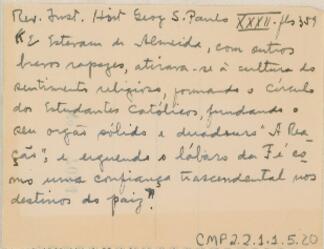 Rev. Inst. Hist Geog S. Paulo XXXII - fls 359
"E Estevam de Almeida, com outros
bravos rapazes, atirava-se à cultura do
sentimento religioso, formando o Circulo
dos Estudantes Católicos, fundando o
seu orgão sólido e duradouro "A Rea-
ção"; e erguendo o lábaro da Fé co-
mo uma confiança trascendental nos
destinos do paiz".
CMP2.2.1.1.5.20